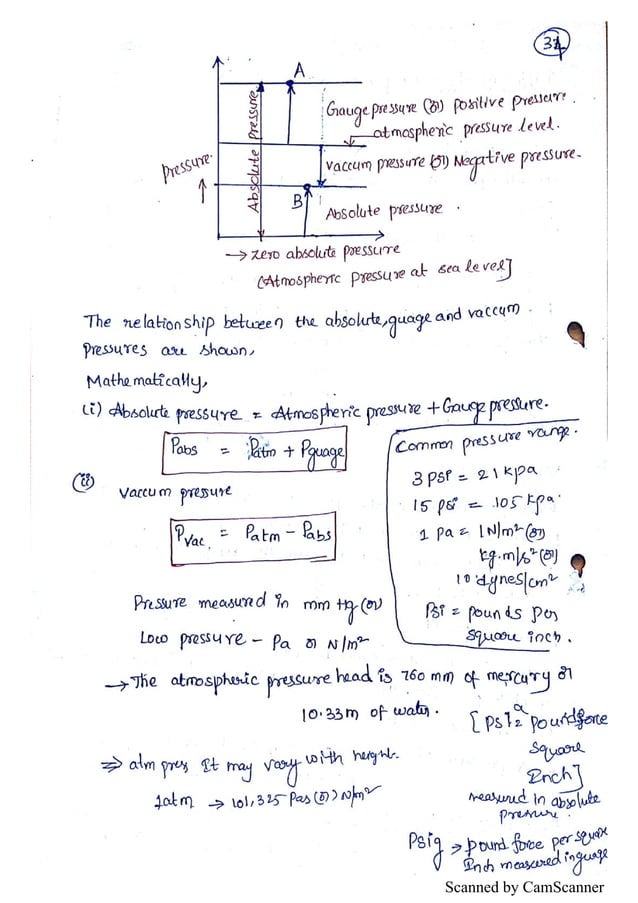 A
Gauge pressure (or) positive pressure.
atmospheric pressure level.
Pressure
Absolute pressure
vaccum pressure (or) Negative pressure.
B
Absolute pressure.
→ zero absolute pressure
[Atmospheric pressure at sea level]
The relationship between the absolute, guage and vaccum
pressures are shown,
Mathematically,
(i) Absolute pressure = Atmospheric pressure + Gauge pressure.
Pabs = Patm + Pguage
(ii)
vaccum pressure
Pvac. = Patm - Pabs
Common pressure range.
3 psi = 21 kpa
15 psi = 105 kpa.
1 pa = 1N/m² (or)
kg.m/s² (or)
10 dynes/cm²
Psi = pounds per
square inch.
Pressure measured in mm Hg (or)
Loco pressure - Pa or N/m²
→ The atmospheric pressure head is 760 mm of mercury or
10.33m of water.
⇒ atm pres It may vary with height.
1atm → 101,325 Pas (or) N/m²
pound force
square
Inch]
measured in absolute
pressure.
Psig → pound force per square
Inch measured in guage
Scanned by CamScanner